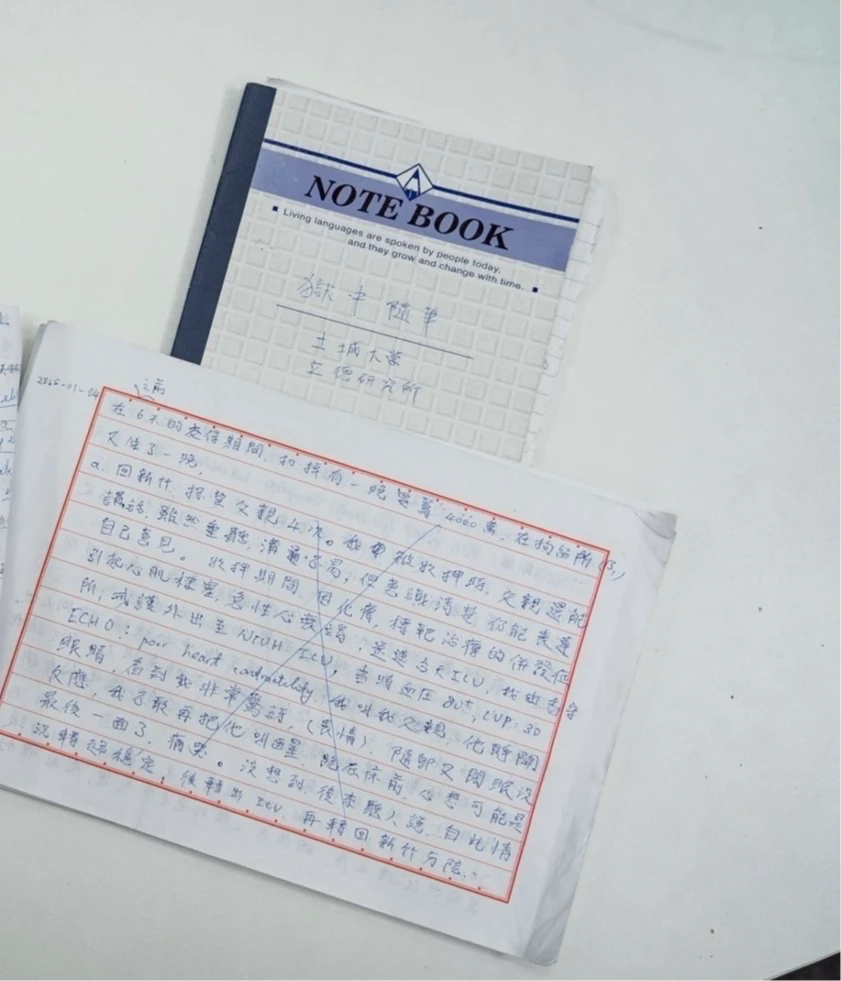 NOTE BOOK
Living languages are spoken by people today,
and they grow and change with time.
獄中隨筆
土城大學
立德研究所
2025-01-04
之前
在6天的交保期間,扣掉有一晚要籌4000萬,在拘留所
又住了一晚,
a. 回新竹,探望父親4次。我被收押頭,父親還能
講話,雖然重聽,溝通不易,但意識清楚仍能表達
自己意見。收押期間,因化療,標靶治療的併發症
引起心肌梗塞,急性心衰竭,送進台大ICU,我由看守
所,戒護外出至NTUH ICU,當時血壓80↑, CVP:30
ECHO: poor heart contractility. 我叫我父親,他睜開
眼睛,看到我非常驚訝(表情),隨即又閉眼沒
反應,我了歌再把他叫醒,跪在床前,心想可能是
最後一面了,痛哭。沒想到,後來聽人說,自此情
況轉趨穩定,後轉出ICU,再轉回新竹分院.